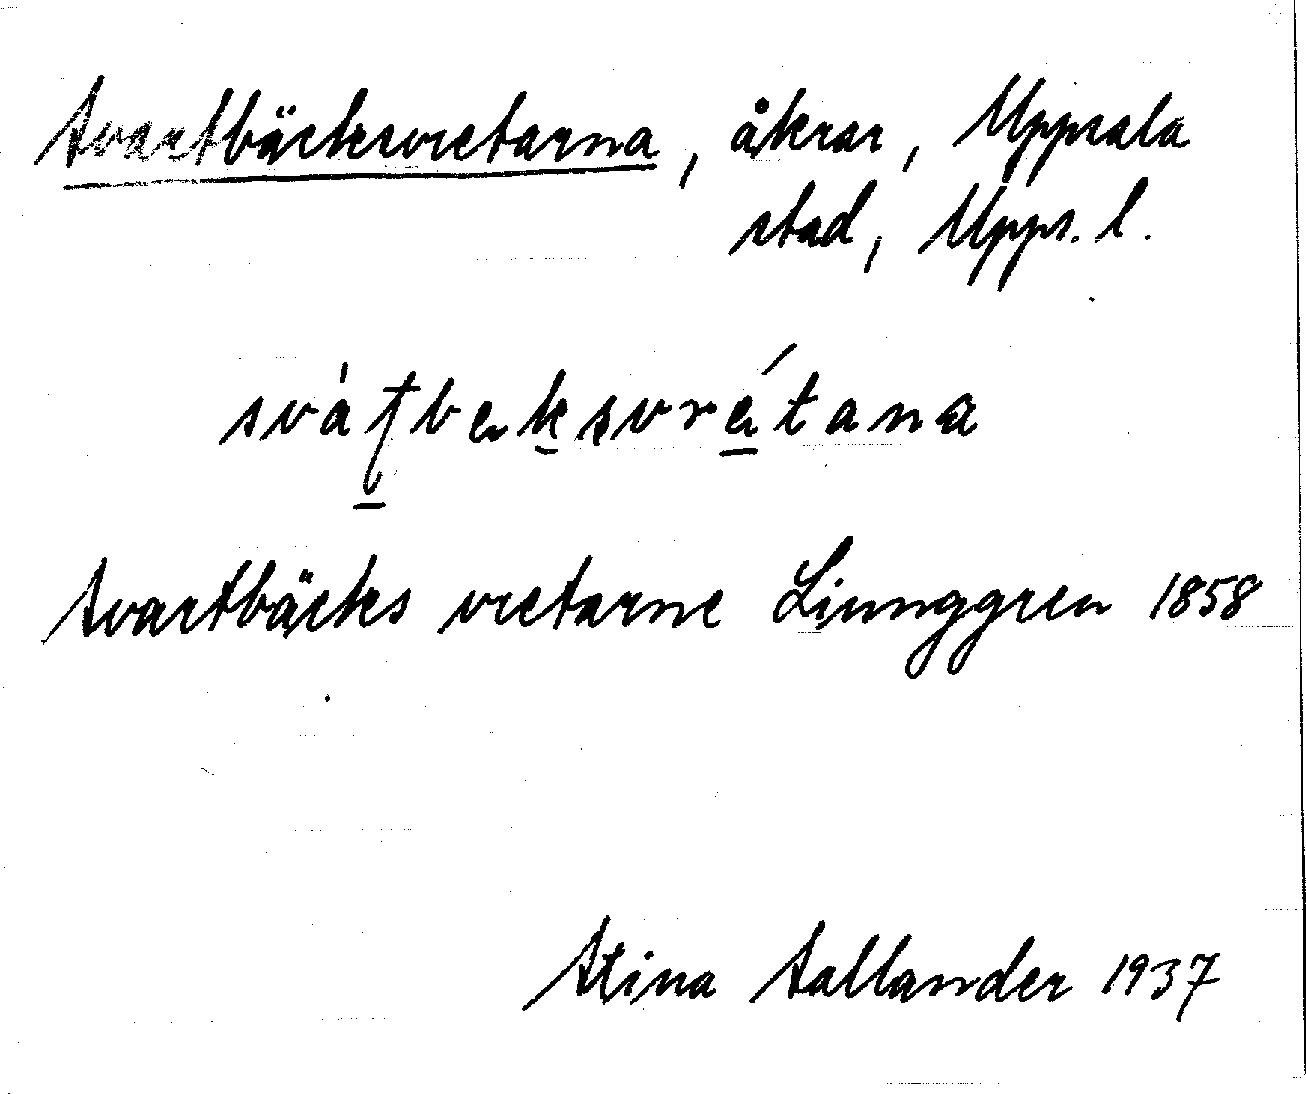 Svartbäcksvretarna, åkrar, Uppsala
stad, Upps. l.
svàʈbeksvrétana
Svartbäcks vretarne Ljunggren 1858
Stina Sallander 1937